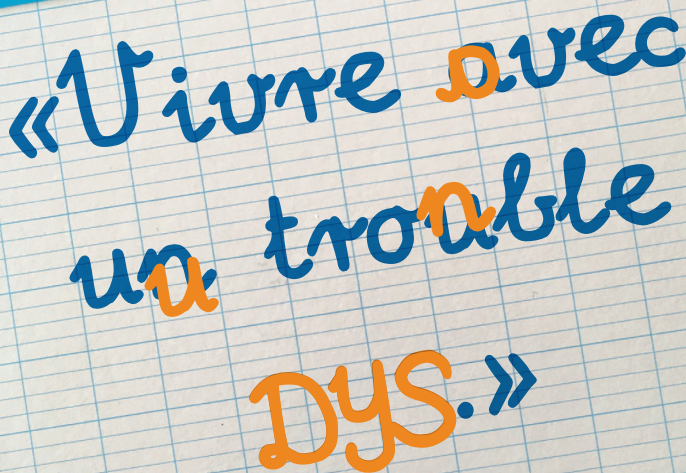 «Vivre avec
un trouble
DYS.»